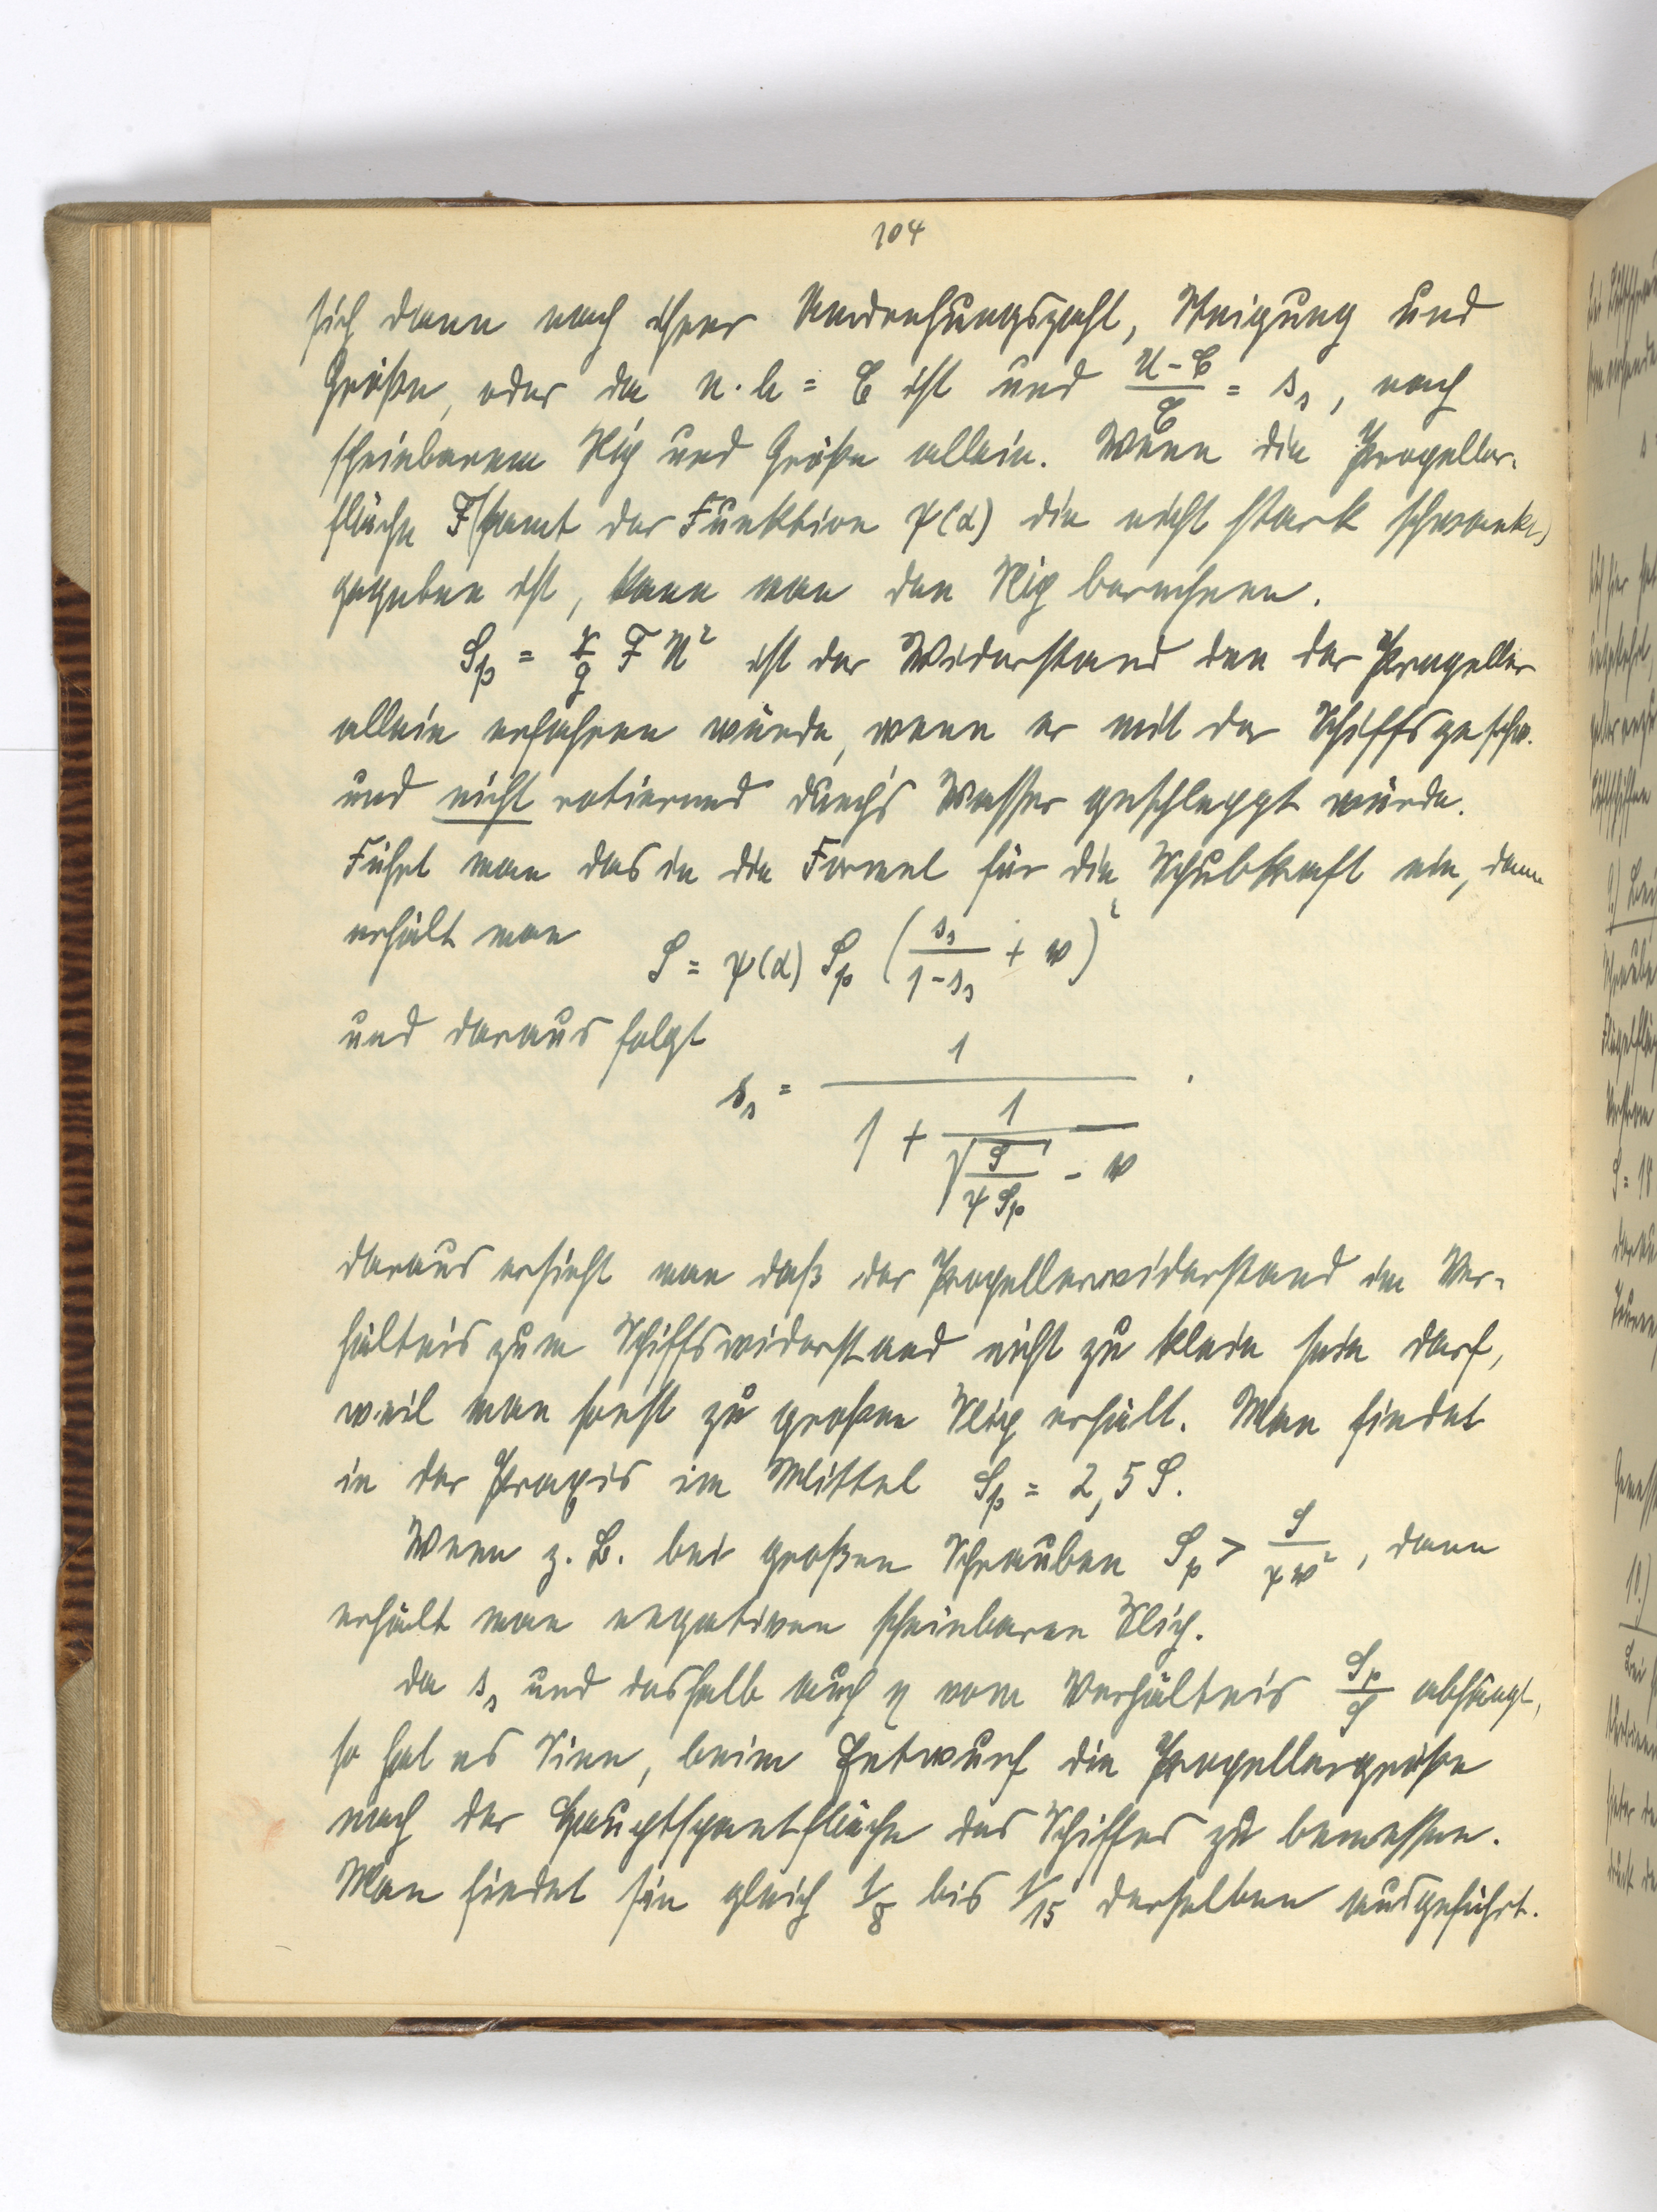 104
sich dann nach ihrer Umdrehungszahl, Steigung und
Größe, oder da n·h = C ist und (U-C)/C = s_s, nach
scheinbarem Slip und Größe allein. Wenn die Propeller-
fläche F (samt der Funktion ψ(α) die nicht stark schwankt)
gegeben ist, kann man den Slip berechnen.
S_p = γ/g F U² ist der Widerstand den der Propeller
allein erfahren würde, wenn er mit der Schiffsgeschw.
und nicht rotierend durch's Wasser geschleppt würde.
Führt man das in die Formel für die Schubkraft ein, dann
erhält man S = ψ(α) S_p (s_s/(1-s_s) + w)²
und daraus folgt
s_s = 1/(1 + 1/(√(S/(ψ S_p)) - w)).
daraus ersieht man daß der Propellerwiderstand im Ver-
hältnis zum Schiffswiderstand nicht zu klein sein darf,
weil man sonst zu großen Slip erhält. Man findet
in der Praxis im Mittel S_p = 2,5 S.
Wenn z. B. bei großen Schrauben S_p > S/(ψw²), dann
erhält man negativen scheinbaren Slip.
da s_s und deshalb auch η vom Verhältnis S_p/S abhängt,
so hat es Sinn, beim Entwurf die Propellergröße
nach der Hauptspantfläche des Schiffes zu bemessen.
Man findet sie gleich 1/8 bis 1/15 derselben ausgeführt.